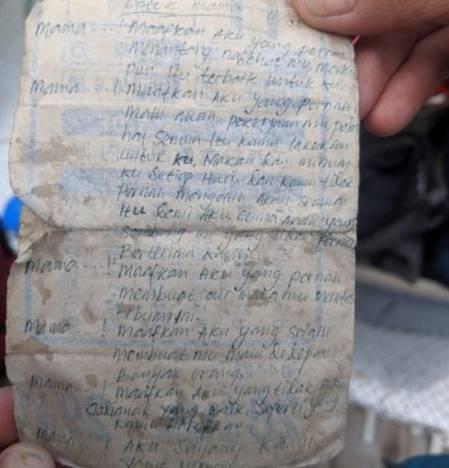 untuk mama
Mama ! Maafkan Aku yang pernah
Menentang nasehat mu Meski
pun Itu terbaik untuk ku.
Mama ! Maafkan Aku yang pernah
Malu akan pekerjaan mu
hal Semua Itu kamu lakukan
untuk ku, Makan dan minum
ku Setiap Hari dan kamu tidak
Pernah mengeluh akan Semua
Itu Demi Aku Anak yang
yang
Berterima Kasih.
Mama ....! Maafkan Aku yang pernah
Membuat air mata mu Menetes
Mama ! Maafkan Aku yang selalu
Membuat mu Malu di depan
Banyak orang.
Mama ! Maafkan Aku yang tidak
anak yang baik, Seperti yang
kamu
Mama ! Aku Sayang Kamu